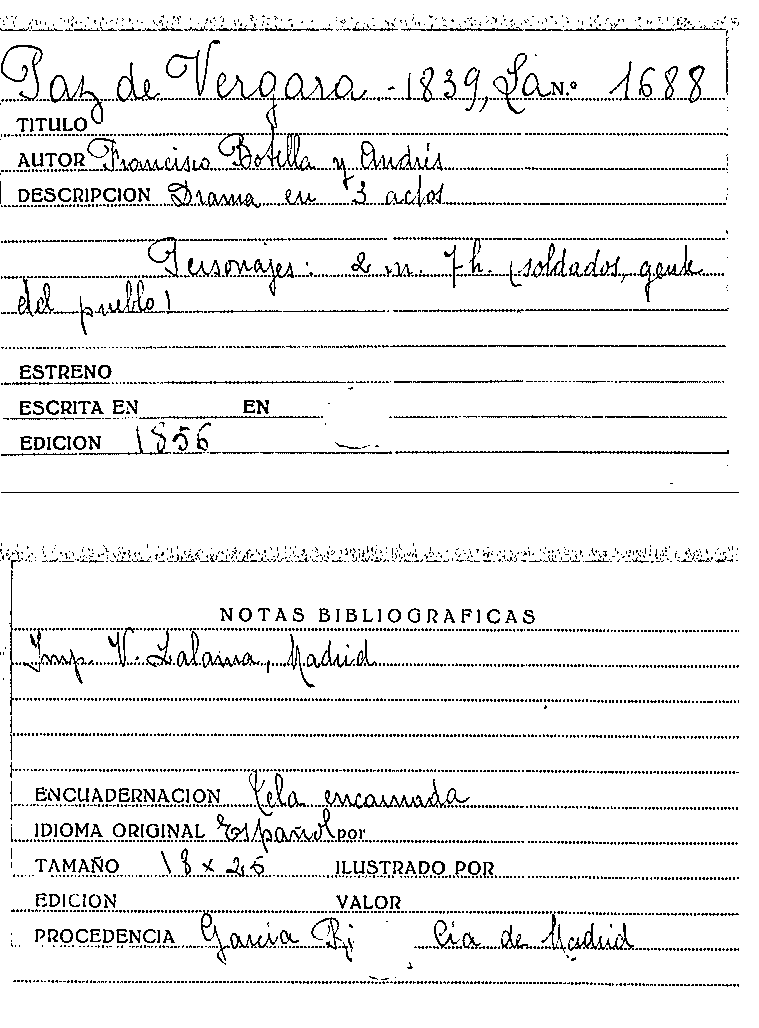 Paz de Vergara - 1839, La N.º 1688
TITULO
AUTOR Francisco Botella y Andrés
DESCRIPCION Drama en 3 actos
Personajes: 2 m. 7 h. (soldados, gente
del pueblo)
ESTRENO
ESCRITA EN EN
EDICION 1856
NOTAS BIBLIOGRAFICAS
Imp. V. Lalama, Madrid
ENCUADERNACION Tela encarnada
IDIOMA ORIGINAL Español por
TAMAÑO 18 x 26 ILUSTRADO POR
EDICION VALOR
PROCEDENCIA Garcia Cia de Madrid